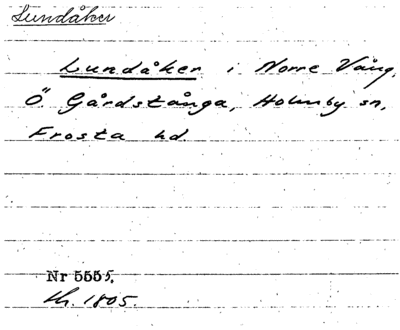 Lundåker
Lundåker i Norre Vång,
Ö Gårdstånga, Holmby sn,
Frosta hd.
Nr 5555.
th. 1805.